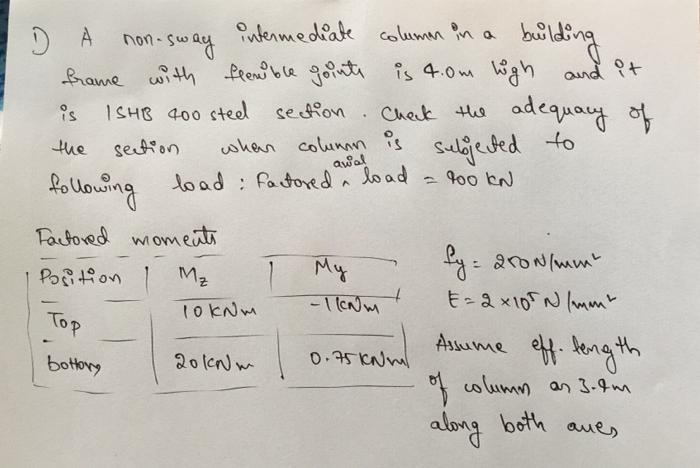 1) A non-sway intermediate column in a building
frame with flexible joints is 4.0m high and it
is ISHB 400 steel section. Check the adequacy of
the section when column is subjected to
following load : Factored axial load = 900 kN
Factored moments
Position Mz My
Top 10 kNm -1 kNm
bottom 20 kNm 0.75 kNm
fy = 250 N/mm²
E = 2 × 10⁵ N/mm²
Assume eff. length
of column as 3.4m
along both axes